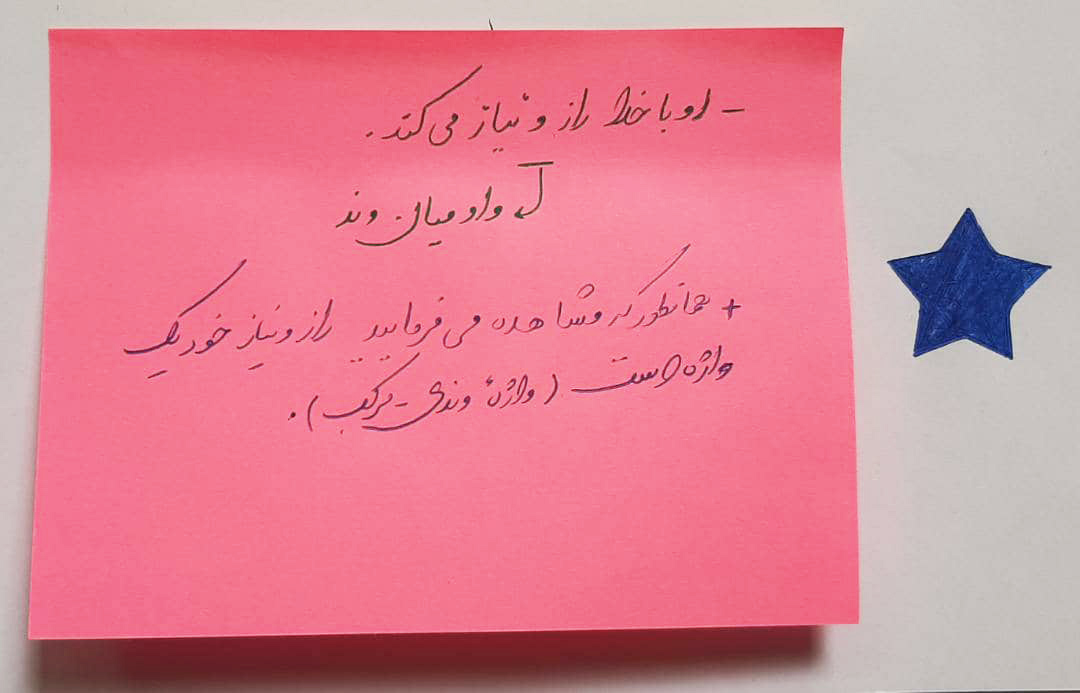 - او با خدا راز و نیاز می کند.
واو میان وند
+ همانطور که مشاهده می فرمایید راز و نیاز خود یک
واژه است (واژهٔ وندی - مرکب).